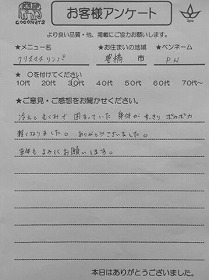 COCONUTS
お客様アンケート
より良い品質・他、掲載にご協力お願いします。
★メニュー名 ★お住まいの地域 ★ペンネーム
クリスマスリンパ 豊橋 市 P.N
★ ○を付けてください
10代 20代 30代 40代 50代 60代 70代〜
★ご意見・ご感想をお聞かせください。
冷えとむくみで困っていた身体がすっきりポカポカ
軽くなりました。ありがとうございました。
またよろしくお願いします。
本日はありがとうございました。